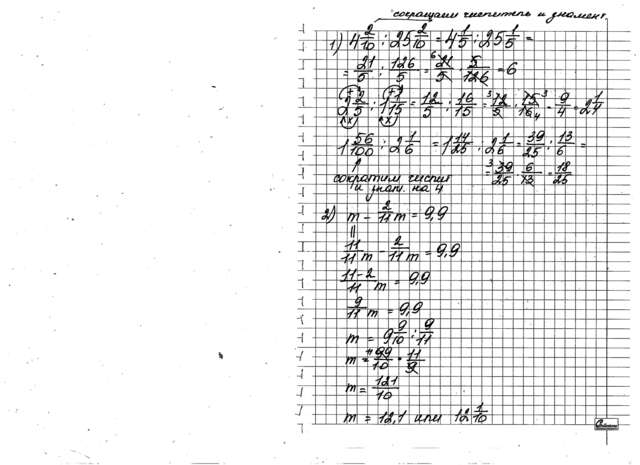 сокращаем числитель и знамен.
1) 4 2/10 : 25 2/10 = 4 1/5 : 25 1/5 =
= 21/5 : 126/5 = 21/5 · 5/126 = 6
2 2/5 : 1 1/15 = 12/5 : 16/15 = 12/5 · 15/16 = 9/4 = 2 1/4
1 56/100 : 2 1/6 = 1 14/25 : 2 1/6 = 39/25 : 13/6 =
= 39/25 · 6/13 = 18/25
сократим числит
и знам. на 4
2) m - 2/11 m = 9,9
11/11 m - 2/11 m = 9,9
11-2/11 m = 9,9
9/11 m = 9,9
m = 9 9/10 : 9/11
m = 99/10 · 11/9
m = 121/10
m = 12,1 или 12 1/10